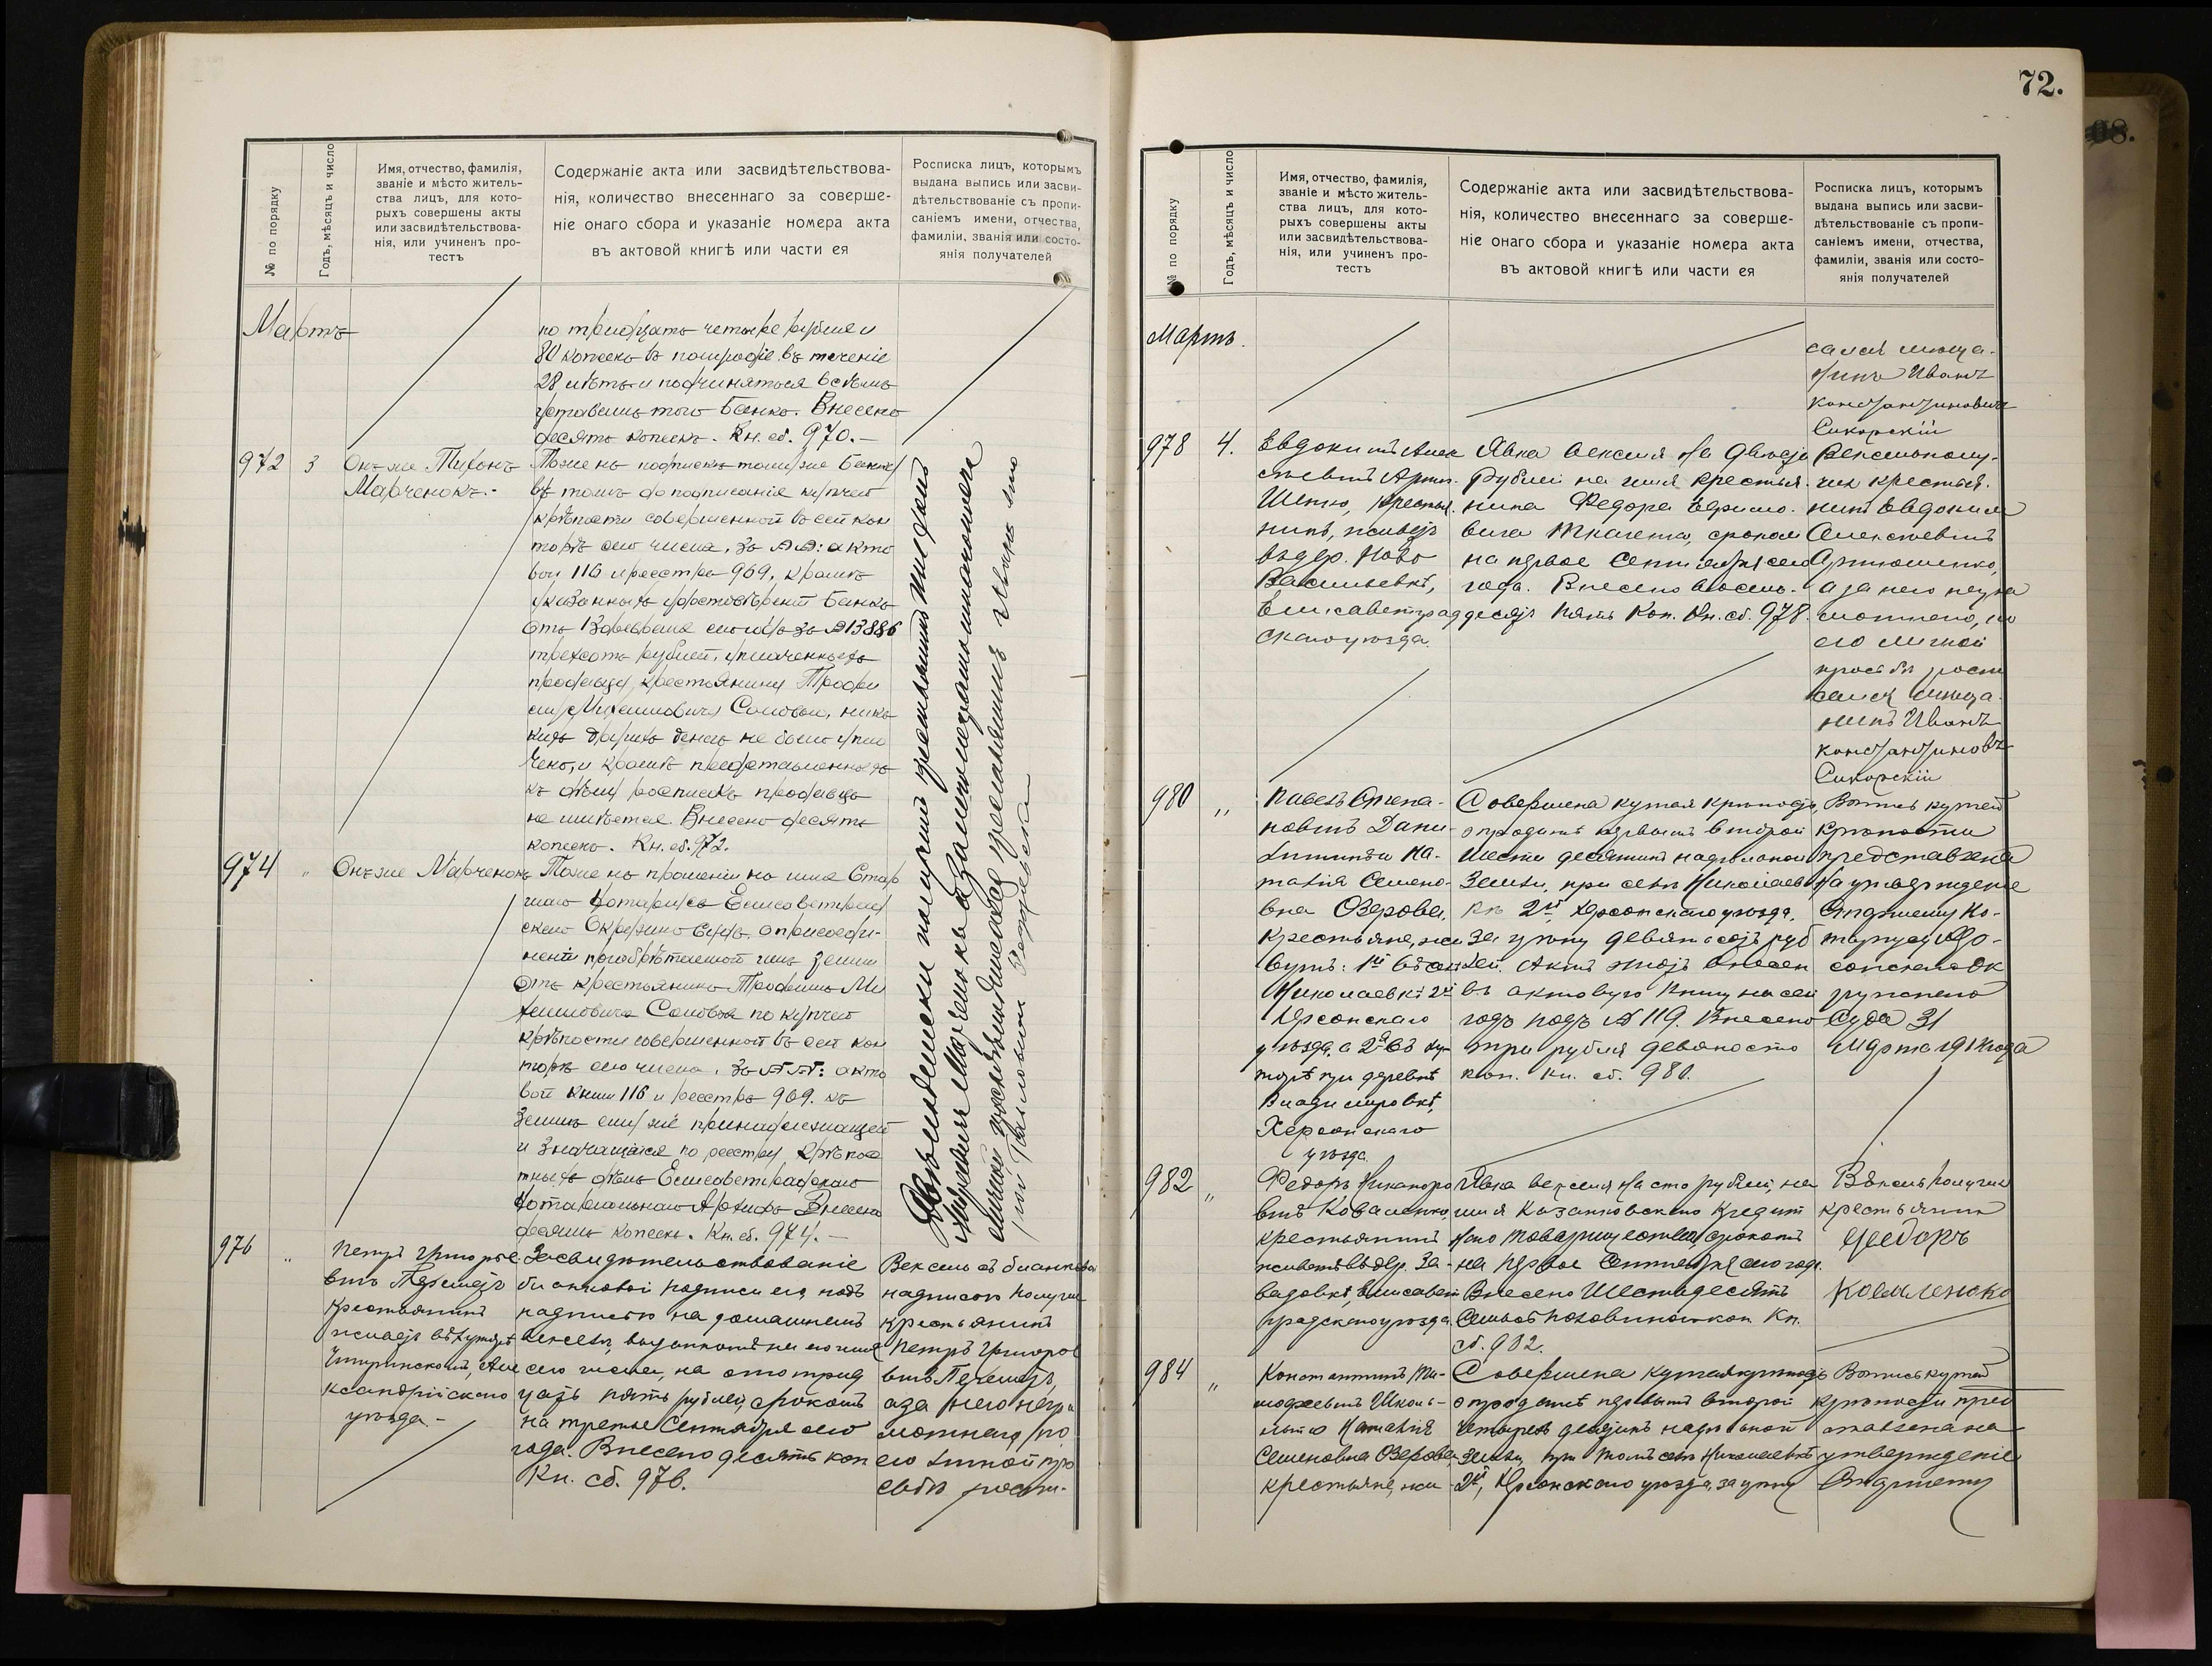 72.
№ по порядку
Годъ, мѣсяцъ и число
Имя, отчество, фамилія,
званіе и мѣсто житель-
ства лицъ, для кото-
рыхъ совершены акты
или засвидѣтельствова-
нія, или учиненъ про-
тестъ
Содержаніе акта или засвидѣтельствова-
нія, количество внесеннаго за соверше-
ніе онаго сбора и указаніе номера акта
въ актовой книгѣ или части ея
Росписка лицъ, которымъ
выдана выпись или засви-
дѣтельствованіе съ пропи-
саніемъ имени, отчества,
фамиліи, званія или состо-
янія получателей
Мартъ
по тридцать четыре рубля и
80 копеекъ въ полугодіе въ теченіе
28 лѣтъ и подчиняться всѣмъ
уставамъ того Банка. Внесено
десять копеекъ. Кн. сб. 970.—
972
3
Онъ же Тихонъ
Марченокъ.-
Тоже на подпискѣ тому же Банку
въ томъ до подписанія купчей
крѣпости совершенной въ сей кон
торѣ сего числа, за №№: акто
вой 116 и реестра 969, кромѣ
указанныхъ
Банка
отъ 13 февраля сего года за №13886
трехсотъ рублей, уплаченныхъ
продавцу крестьянину Трофи
му Михайловичу Соловью, ника
кихъ другихъ денегъ не было упла
чено, и кромѣ представленныхъ
къ дѣлу росписокъ продавца
не имѣется. Внесено десять
копеекъ. Кн. сб. 972.
974
"
Онъ же Марченокъ
Тоже на прошеніи на имя Стар
шаго Нотаріуса Елисаветград
скаго Окружного Суда о присоеди-
неніи пріобрѣтаемой имъ земли
отъ крестьянина Трофима Ми
хайловича Соловья по купчей
крѣпости совершенной въ сей кон
торѣ сего числа, за №№: акто
вой книги 116 и реестра 969. къ
землѣ ему же принадлежащей
и значащейся по реестру крѣпос
тныхъ дѣлъ Елисаветградскаго
Нотаріальнаго Архива. Внесено
десять копеекъ. Кн. сб. 974.—
976
"
Петръ Григорье
вичъ
крестьянинъ
живетъ въ хуторѣ
Але
ксандрійскаго
уѣзда.-
Засвидѣтельствованіе
бланковой подписи его подъ
надписью на домашнемъ
векселѣ, выданномъ на его имя
сего числа, на сто трид
цать пять рублей, срокомъ
на третье Сентября сего
года. Внесено десять коп
Кн. сб. 976.
Вексель съ бланковой
надписью получилъ
крестьянинъ
Петръ Григорье
вичъ
а за него негра
мотнаго, по
его личной про
сьбѣ роспи-
№ по порядку
Годъ, мѣсяцъ и число
Имя, отчество, фамилія,
званіе и мѣсто житель-
ства лицъ, для кото-
рыхъ совершены акты
или засвидѣтельствова-
нія, или учиненъ про-
тестъ
Содержаніе акта или засвидѣтельствова-
нія, количество внесеннаго за соверше-
ніе онаго сбора и указаніе номера акта
въ актовой книгѣ или части ея
Росписка лицъ, которымъ
выдана выпись или засви-
дѣтельствованіе съ пропи-
саніемъ имени, отчества,
фамиліи, званія или состо-
янія получателей
Мартъ.
сался мѣща-
нинъ Иванъ
Константиновичъ
Сикорскій
978
4.
Евдокимъ Алек
сѣевичъ Артю-
шенко, крестья-
нинъ, живетъ
въ дер. Ново
Васильевкѣ,
Елисаветград
скаго уѣзда.
Явка векселя на двѣсти
рублей на имя крестья-
нина Федора Ефимо-
вича Ткаченка, срокомъ
на первое Сентября сего
года. Внесено восемь-
десятъ пять коп. Кн. сб. 978.
Вексель полу-
чилъ крестья-
нинъ Евдокимъ
Алексѣевичъ
Артюшенко,
а за него негра
мотнаго, по
его личной
просьбѣ роспи
сался мѣща-
нинъ Иванъ
Константиновъ
Сикорскій
980
"
Павелъ Степа-
новичъ Дани-
личинъ и На-
талія Семено-
вна Озерова,
крестьяне, жи
вутъ: 1й въ селѣ
Николаевкѣ 2й
Херсонскаго
уѣзда, а 2я въ ху-
торѣ при деревнѣ
Владимировкѣ,
Херсонскаго
уѣзда.
Совершена купчая крѣпость
о продажѣ первымъ второй
шести десятинъ надѣльной
земли, при селѣ Николаев
кѣ 2й Херсонскаго уѣзда,
за цѣну девятьсотъ руб
лей. Актъ этотъ внесенъ
въ актовую книгу на сей
годъ подъ № 119. Внесено
три рубля девяносто
коп. Кн. сб. 980.
Выпись купчей
крѣпости
представлена
на утвержденіе
Старшему Но-
таріусу Хер-
сонскаго Ок
ружного
Суда 31
Марта 191 года
982
"
Федоръ Никаноро
вичъ Коваленко,
крестьянинъ
живетъ въ дер. За-
вадовкѣ, Елисавет
градскаго уѣзда
Явка векселя на сто рублей, на
имя Казанковскаго Кредит
наго Товарищества, срокомъ
на первое Сентября сего года.
Внесено шестьдесятъ
семь съ половиною коп. Кн.
сб. 982.
Вексель получилъ
крестьянинъ
Федоръ
Коваленко
984
"
Константинъ Ти-
мофеевичъ Школь-
ный и Наталія
Семеновна Озерова,
крестьяне, жи-
Совершена купчая крѣпость
о продажѣ первымъ второй
четырехъ десятинъ надѣльной
земли, при томъ селѣ Николаевкѣ
2й, Херсонскаго уѣзда, за цѣну
Выпись купчей
крѣпости пред
ставлена на
утвержденіе
Старшему